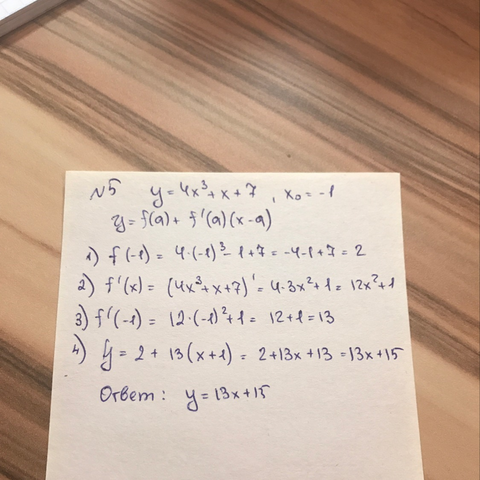 №5 y = 4x³ + x + 7 , x₀ = -1
y = f(a) + f'(a)(x-a)
1) f(-1) = 4·(-1)³ - 1 + 7 = -4 - 1 + 7 = 2
2) f'(x) = (4x³ + x + 7)' = 4·3x² + 1 = 12x² + 1
3) f'(-1) = 12·(-1)² + 1 = 12 + 1 = 13
4) y = 2 + 13(x+1) = 2 + 13x + 13 = 13x + 15
Ответ: y = 13x + 15